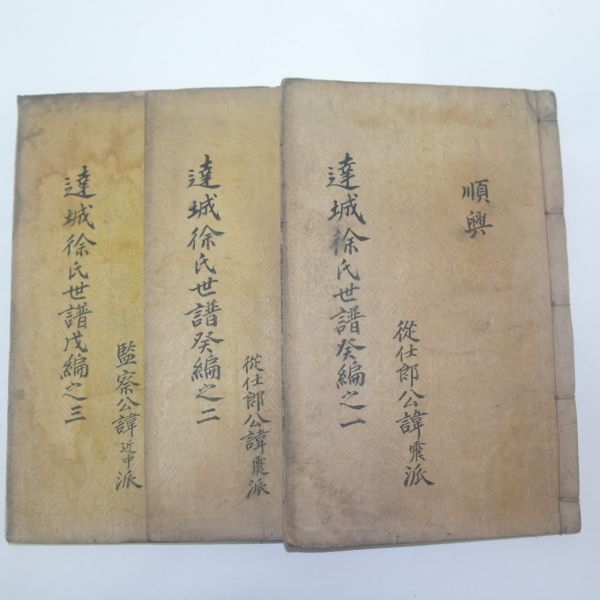 順興
從仕郎公諱震派
達城徐氏世譜癸編之一
從仕郎公諱震派
達城徐氏世譜癸編之二
監察公諱近中派
達城徐氏世譜戊編之三